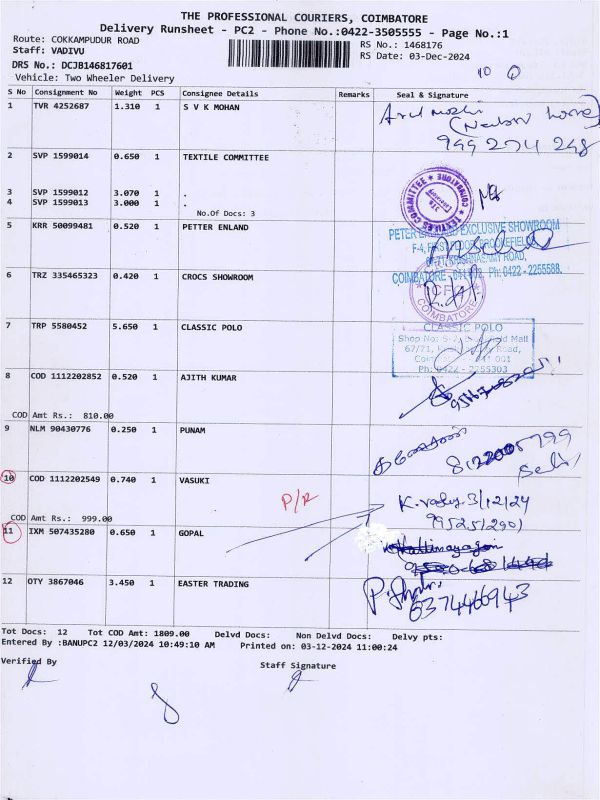 THE PROFESSIONAL COURIERS, COIMBATORE
Delivery Runsheet - PC2 - Phone No.:0422-3505555 - Page No.:1
Route: COKKAMPUDUR ROAD
RS No.: 1468176
Staff: VADIVU
RS Date: 03-Dec-2024
DRS No.: DCJB146817601
Vehicle: Two Wheeler Delivery
10
S No Consignment No Weight PCS Consignee Details Remarks Seal & Signature
1 TVR 4252687 1.310 1 S V K MOHAN
999 274 248
2 SVP 1599014 0.650 1 TEXTILE COMMITTEE
TEXTILES COMMITTEE COIMBATORE
3 SVP 1599012 3.070 1 .
4 SVP 1599013 3.000 1 .
No.Of Docs: 3
5 KRR 50099481 0.520 1 PETTER ENLAND
PETER ENGLAND EXCLUSIVE SHOWROOM
F-4, FIRST FLOOR, BROOKEFIELDS,
KRISHNASAMY ROAD,
COIMBATORE - Ph: 0422 - 2255588.
6 TRZ 335465323 0.420 1 CROCS SHOWROOM
COIMBATORE
7 TRP 5580452 5.650 1 CLASSIC POLO
CLASSIC POLO
Shop No: Mall
67/71, Road,
001
Ph: 0422 - 2255303
8 COD 1112202852 0.520 1 AJITH KUMAR
COD Amt Rs.: 810.00
9 NLM 90430776 0.250 1 PUNAM
10 COD 1112202549 0.740 1 VASUKI
P/R
3/12/24
9952512901
COD Amt Rs.: 999.00
11 IXM 507435280 0.650 1 GOPAL
12 OTY 3867046 3.450 1 EASTER TRADING
6374466943
Tot Docs: 12 Tot COD Amt: 1809.00 Delvd Docs: Non Delvd Docs: Delvy pts:
Entered By :BANUPC2 12/03/2024 10:49:10 AM Printed on: 03-12-2024 11:00:24
Verified By Staff Signature